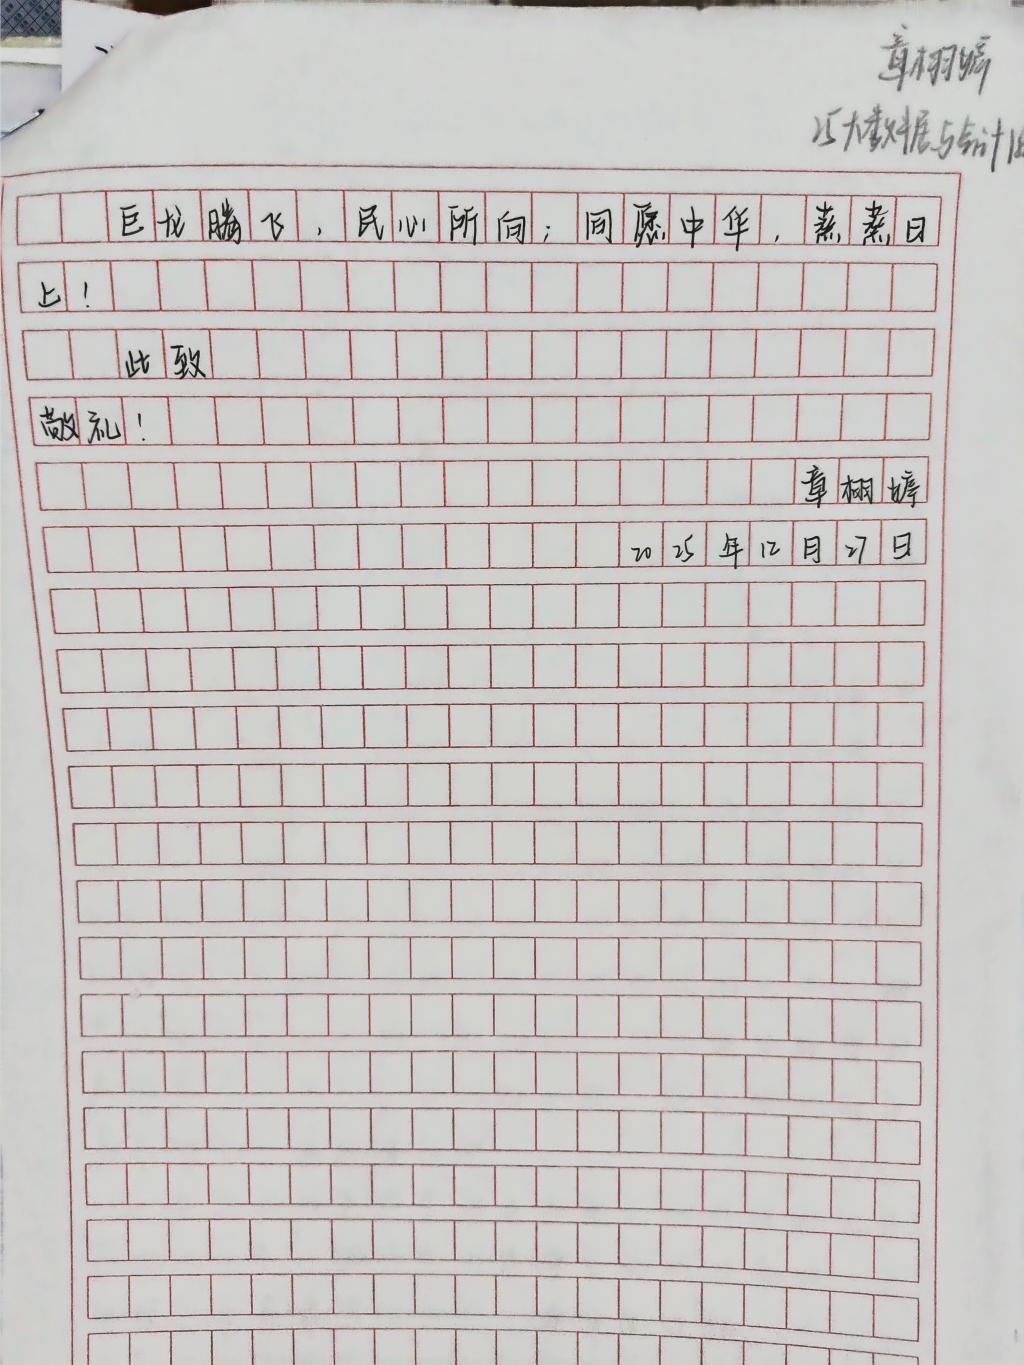 章栩婷
25大数据与会计
巨龙腾飞，民心所向；同愿中华，蒸蒸日
上！
此致
敬礼！
章栩婷
2025年12月27日